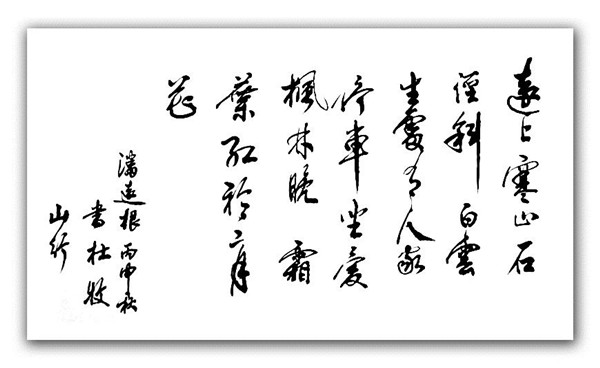 遠上寒山石
徑斜白雲
生處有人家
停車坐愛
楓林晚霜
葉紅於二月
花
遠根丙申秋
書杜牧
山行